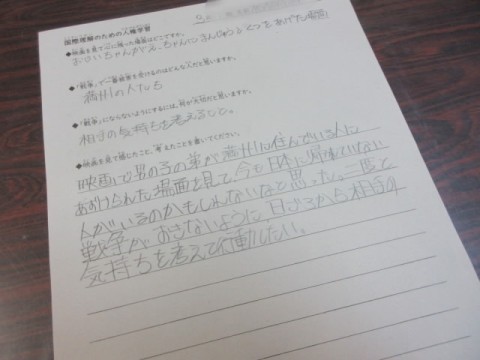 国際理解のための人権学習
◆映画を見て心に残った場面はどこですか。
おにいちゃんが
くつをあげた場面
◆「戦争」で一番被害を受けるのはどんな人だと思いますか。
満州の人たち
◆「戦争」にならないようにするには、何が大切だと思いますか。
相手の気持ちを考えること。
◆映画を見て感じたこと、考えたことを書いてください。
映画で男の子の弟が満州に住んでいる人に
あずけられた場面を見て、今も日本に帰国していない
人がいるのかもしれないなと思った。二度と
戦争がおきないように日ごろから相手の
気持ちを考えて行動したい。